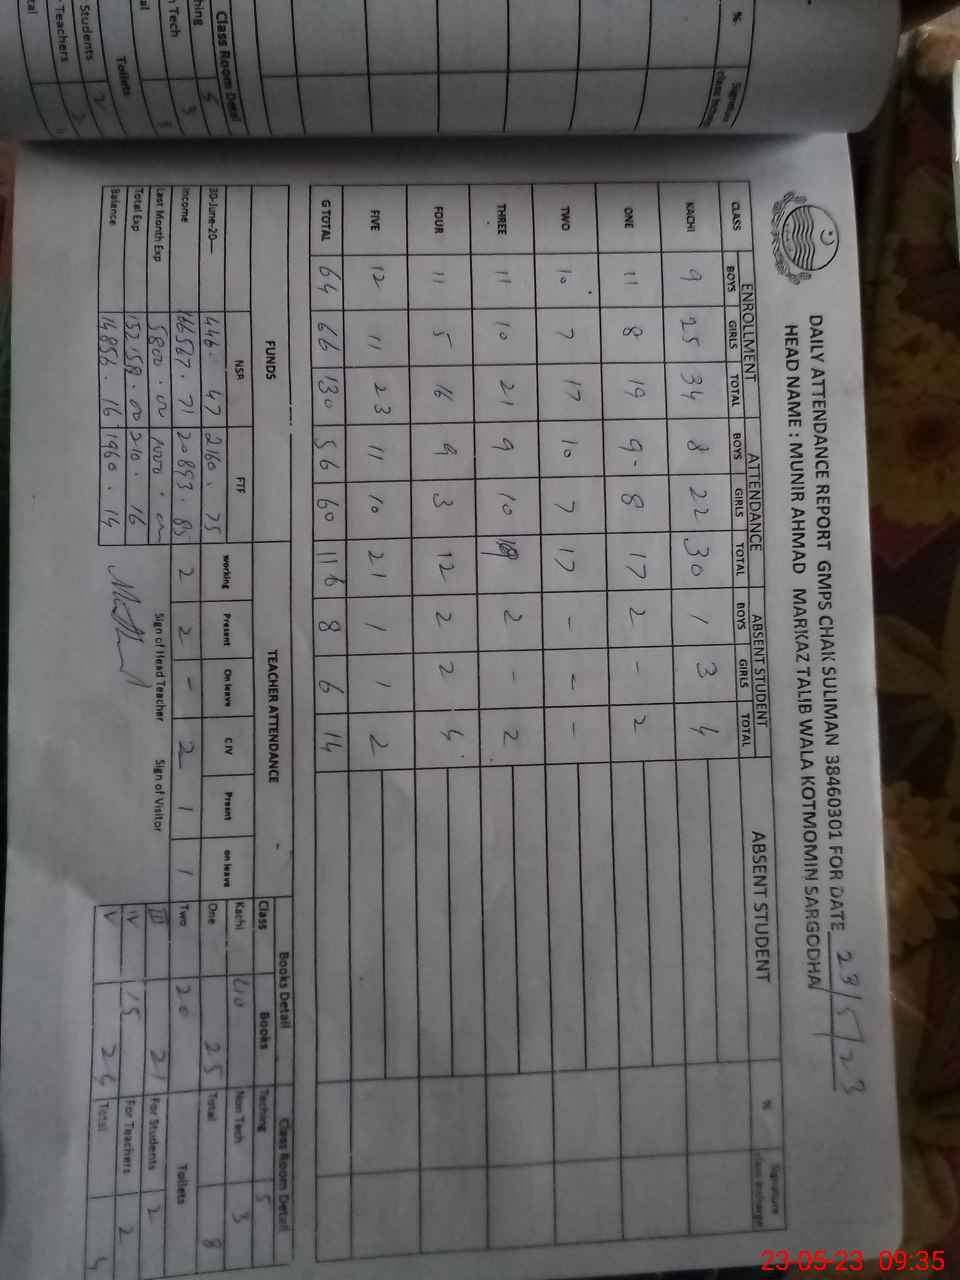 DAILY ATTENDANCE REPORT GMPS CHAK SULIMAN 38460301 FOR DATE 23/5/23
HEAD NAME : MUNIR AHMAD MARKAZ TALIB WALA KOTMOMIN SARGODHA
CLASS ENROLLMENT ATTENDANCE ABSENT STUDENT ABSENT STUDENT % Signature class incharge
BOYS GIRLS TOTAL BOYS GIRLS TOTAL BOYS GIRLS TOTAL
KACHI 9 25 34 8 22 30 1 3 4
ONE 11 8 19 9 8 17 2 - 2
TWO 10 7 17 10 7 17 - - -
THREE 11 10 21 9 10 19 2 - 2
FOUR 11 5 16 9 3 12 2 2 4
FIVE 12 11 23 11 10 21 1 1 2
G TOTAL 64 66 130 56 60 116 8 6 14
FUNDS TEACHER ATTENDANCE Books Detail Class Room Detail
NSB FTF working Present On leave CIV Presnt on leave Class Books Teching 5
30-June-20— 446. 47 2160. 75 Kachi 40 Non Tech 3
Income 166567. 71 20893. 2 2 - 2 1 1 One 25 Total 8
Last Month Exp 5800. 00 Two 20 Toilets
Total Exp 152159. 00 210. 16 Sign of Head Teacher Sign of Visitor III 21 For Students 2
Balance 14856. 16 1960. 14 IV 15 For Teachers 2
V 24 Total 4
% Signature class incharge
Class Room Detail
hing 5
Tech 3
Toilets
Students 2
Teachers
23-05-23 09:35